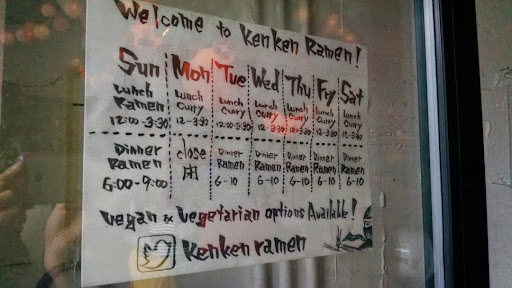 Welcome to Ken Ken Ramen!
Sun Mon Tue Wed Thu Fry Sat
Lunch Lunch Lunch Lunch Lunch Lunch Lunch
Ramen Curry Curry Curry Curry Curry Curry
12:00-3:30 12-3:30 12:00-3:30 12-3:30 12-3:30 12-3:30 12-3:30
Dinner close Dinner Dinner Dinner Dinner Dinner
Ramen 閉 Ramen Ramen Ramen Ramen Ramen
6:00-9:00 6-10 6-10 6-10 6-10 6-10
Vegan & Vegetarian options Available!
Kenkenramen